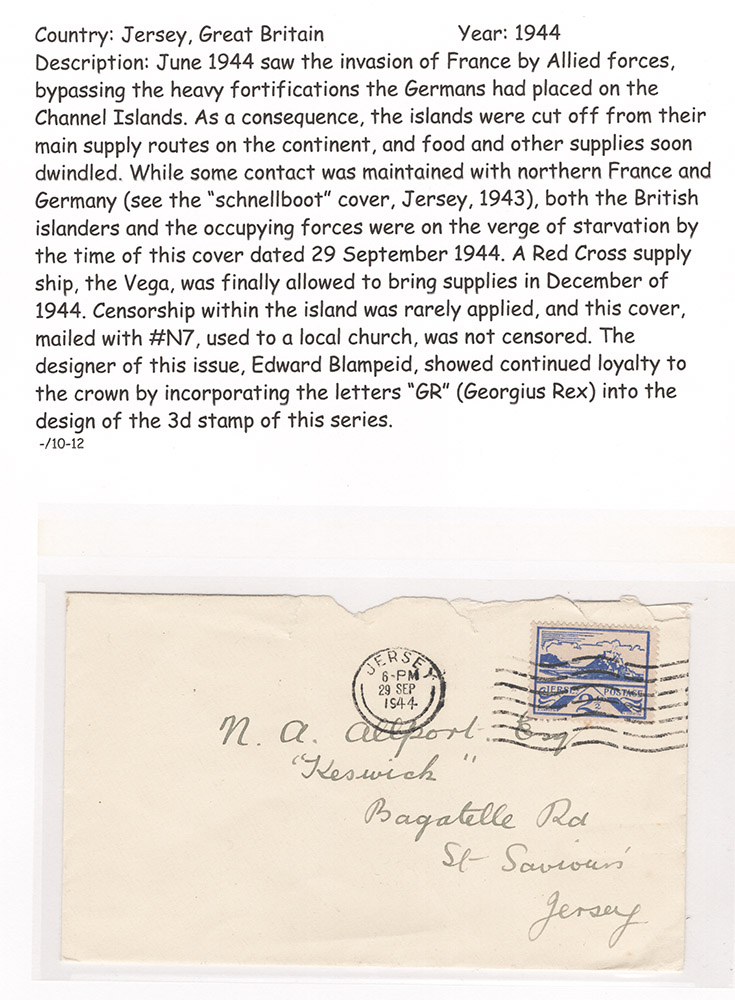 Country: Jersey, Great Britain Year: 1944
Description: June 1944 saw the invasion of France by Allied forces,
bypassing the heavy fortifications the Germans had placed on the
Channel Islands. As a consequence, the islands were cut off from their
main supply routes on the continent, and food and other supplies soon
dwindled. While some contact was maintained with northern France and
Germany (see the “schnellboot” cover, Jersey, 1943), both the British
islanders and the occupying forces were on the verge of starvation by
the time of this cover dated 29 September 1944. A Red Cross supply
ship, the Vega, was finally allowed to bring supplies in December of
1944. Censorship within the island was rarely applied, and this cover,
mailed with #N7, used to a local church, was not censored. The
designer of this issue, Edward Blampeid, showed continued loyalty to
the crown by incorporating the letters “GR” (Georgius Rex) into the
design of the 3d stamp of this series.
-/10-12
JERSEY
6-PM
29 SEP
1944
JERSEY POSTAGE
2½
N. A. Allport Esq
"Keswick"
Bagatelle Rd
St Saviours
Jersey